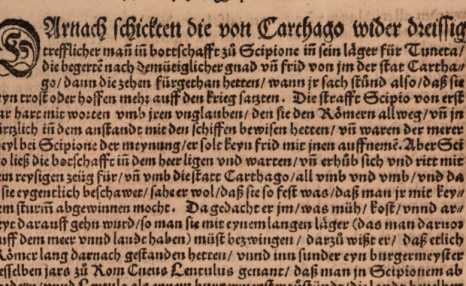 DArnach schickten die von Carthago wider dreissig
trefflicher mañ iñ bottschafft zů Scipione iñ sein låger für Tuneta/
die begerte nach demütiglicher gnad vñ frid von jm der stat Cartha-
go/ dann die zehen fürgethan hetten/ wann jr sach stünd also/ daß sie
eyn trost oder hoffen mehr auff den krieg satzten. Die strafft Scipio von erst
ar hart mit worten vmb jren vnglauben/ den sie den Römern allweg/ vñ jn
ürtzlich iñ dem anstandt mit den schiffen bewisen hetten/ vñ waren der merer
eyl bei Scipione der meynung/ er solt keyn frid mit jnen auffnemē. Aber Sci
o ließ die botschafft iñ dem heer ligen vnd warten/ vñ erhůb sich vnd ritt mit
en reysigen zeüg für/ vñ vmb die statt Carthago/ all vmb vnd vmb/ vnd da
sie eygentlich beschawet/ sahe er wol/ daß sie so fest was/ daß man jr mit key-
em sturm abgewinnen mocht. Da gedacht er jm/ was müh/ kost/ vnnd ar-
eyt darauff gehn wurd/ so man sie eynem langen låger (das man daruor
uff dem meer vnnd landt haben) müst bezwingen/ darzů wißt er/ daß etlich
Römer lang darnach gestanden hetten/ vnnd iñ sunder eyn burgermeyster
esselben jars zů Rom Cneus Lentulus genant/ daß man jn Scipionem ab